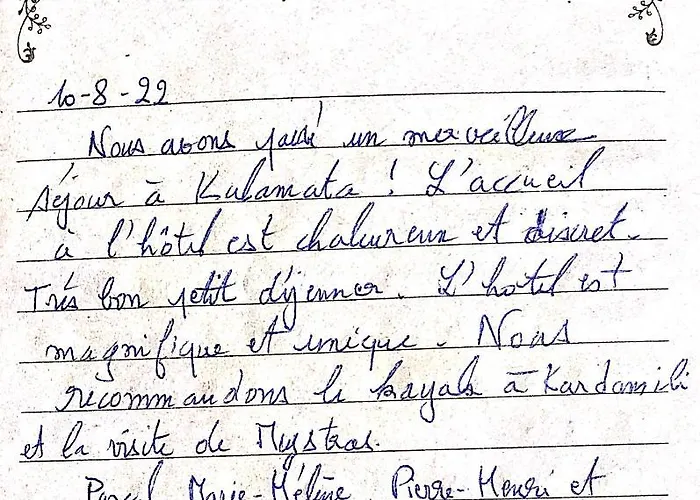 10-8-22
Nous avons passé un merveilleux
séjour à Kalamata ! L'accueil
à l'hôtel est chaleureux et discret.
Très bon petit déjeuner. L'hotel est
magnifique et unique. Nous
recommandons le kayak à Kardamili
et la visite de Mystras.
Pascal Marie-Hélène, Pierre-Henri et